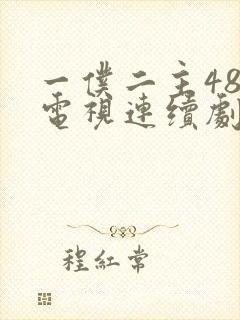 一僕二主48
電視連續劇
程紅常